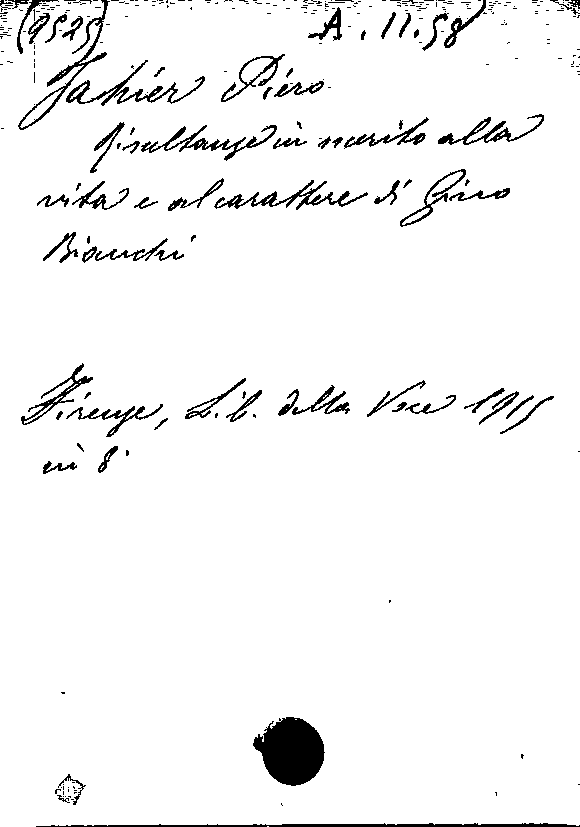 (9525) A.11.58
Jahier Piero
Risultanze in merito alla
vita e al carattere di Gino
Bianchi
Firenze, Lib. della Voce 1915
in 8°